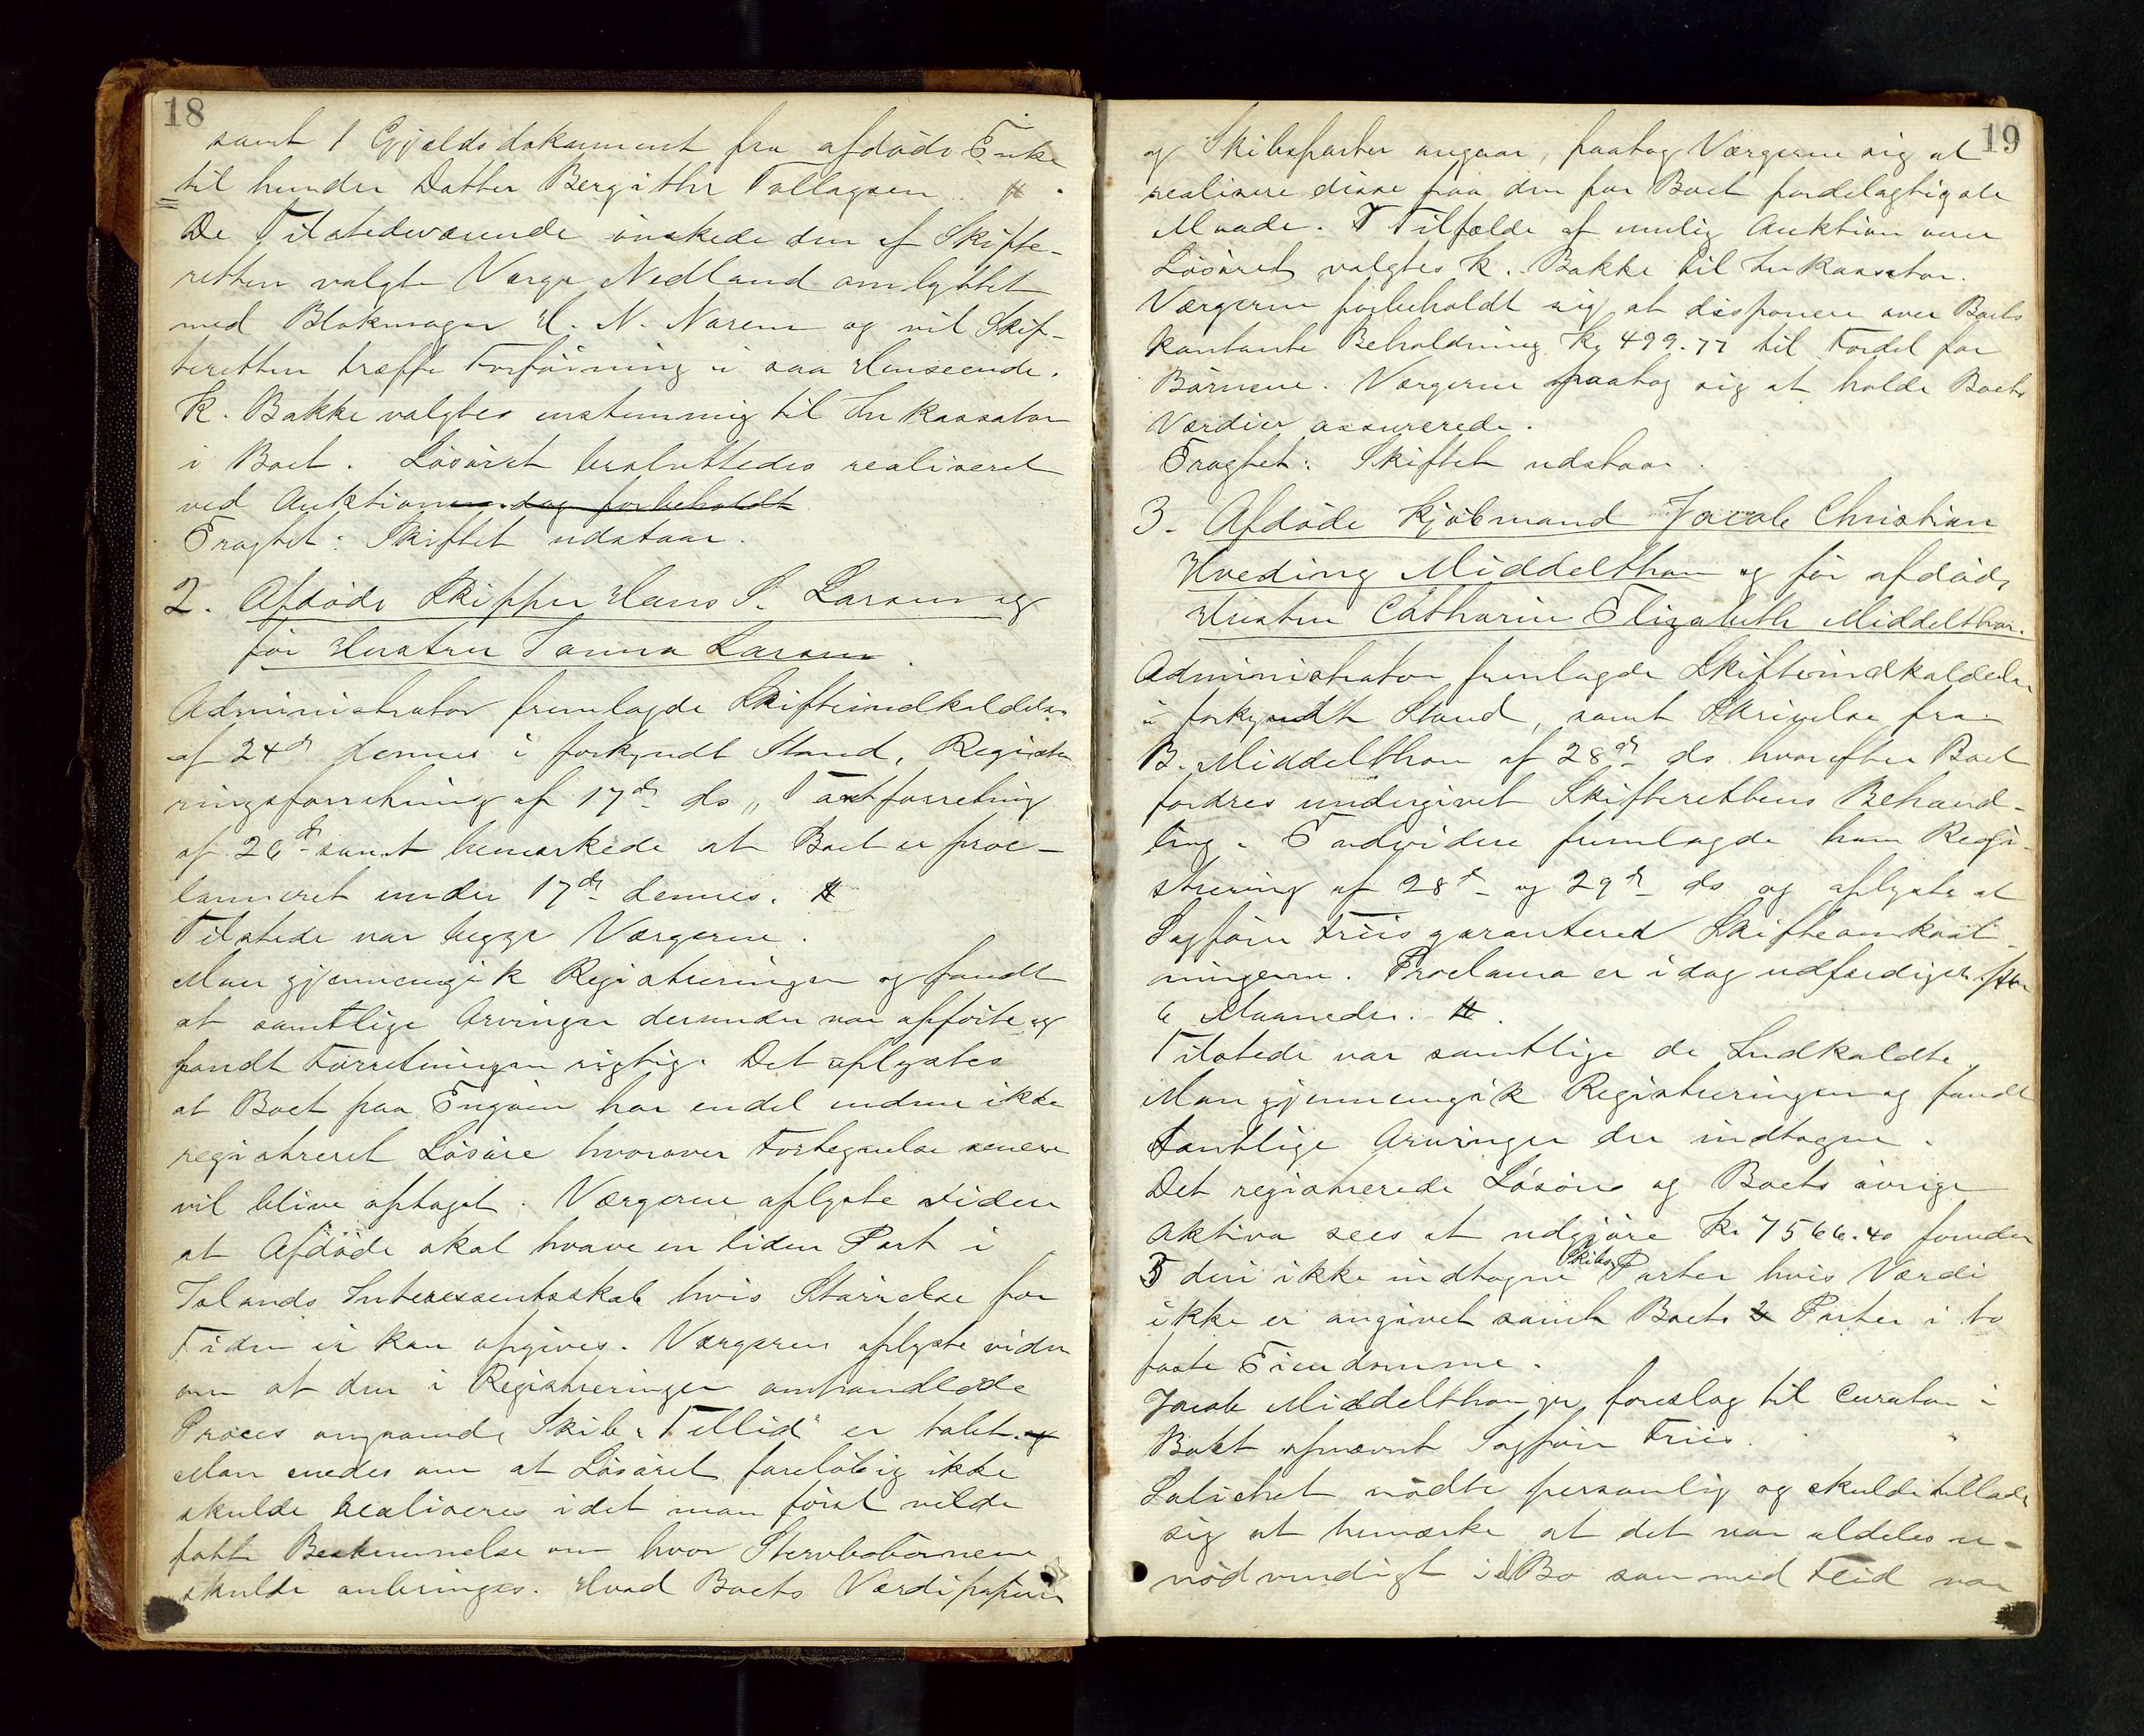 18
samt 1 Gjældsdokument fra afdøde Enke
til hendes Datter Bergithe Tollagsen #.
De Tilstedeværende ønskede den af Skifte-
retten valgte Verge Nedland ombyttet
med Blokmager H. N. Narem og vil Skif-
teretten træffe Forføining i saa Henseende.
K. Bakke valgtes enstemmig til Inkassator
i Boet. Løsøret besluttedes realiseret
ved Auktion dog forbeholdt
Fragtet: Skiftet udstaar.
2. Afdøde Skipper Hans S. Larsen og
før Hustru Tanna Larsen.
Administrator fremlagde Skifteindkaldelse
af 24de dennes i forkyndt Stand, Registe-
ringsforretning af 17de ds, Taxtforretning
af 26de samt bemærkede at Boet er proc-
lameret under 17de dennes. #
Tilstede var begge Værgerne.
Man gjennemgik Registreringen og fandt
at samtlige Arvinger derunder var opførte og
fandt Forretningen rigtig. Det oplystes
at Boet paa Engøen har endel endnu ikke
registreret Løsøre hvorover Fortegnelse senere
vil blive optaget. Værgerne oplyste siden
at Afdøde skal have en liden Part i
Tolands Interessentskab hvis Størrelse for
Tiden ei kan opgives. Værgerne oplyste viden
om at den i Registreringen omhandlede
Proces angaaende Skib "Tillid" er tabt. og
Man enedes om at Løsøret foreløbig ikke
skulde realiseres idet man først vilde
fatte Bestemmelse om hvor Stervbobørnene
skulde anbringes. Hvad Boets Værdipapirer
19
og Skibsparter angaar, paatog Værgerne sig at
realisere disse paa den for Boet fordelagtigste
Maade. I Tilfælde af mulig Auktion over
Løsøret valgtes K. Bakke til Inkassator.
Værgerne forbeholdt sig at disponere over Boets
kontante Beholdning Kr 499.77 til Fordel for
Børnene. Værgerne paatog sig at holde Boets
Værdier assurerede.
Fragtet: Skiftet udstaar.
3. Afdøde Kjøbmand Jacob Christian
Hveding Middelthon og før afdøde
Hustru Cathrine Elizabeth Middelthon.
Administrator fremlagde Skifteindkaldelse
i forkyndt Stand, samt Skrivelse fra
B. Middelthon af 28de ds hvorefter Boet
fordres undergivet Skifterettens Behand-
ling. Endvidere fremlagde han Regi-
strering af 28de og 29de ds og oplyste at
Sagfører Friis garanterede Skifteomkost-
ningerne. Proclama er idag udfærdiget for
6 Maaneder. #.
Tilstede var samtlige de Indkaldte.
Man gjennemgik Registreringen og fandt
samtlige Arvinger der indtagne.
Det registrerede Løsøre og Boets øvrige
Aktiva sees at udgjøre Kr 7566.40 foruden
5 deri ikke indtagne Skibs Parter hvis Værdi
ikke er angivet samt Boets 2 Parter i to
faste Eiendomme.
Jacob Middelthon jr foreslog til Curator i
Boet ofnævnt Sagfører Friis.
mødte personlig og skulde tillade
sig at bemærke at det var aldeles u-
nødvendigt i d Bo som med Flid var